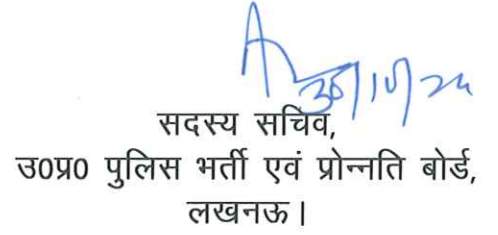 30/10/24
सदस्य सचिव,
उ०प्र० पुलिस भर्ती एवं प्रोन्नति बोर्ड,
लखनऊ।